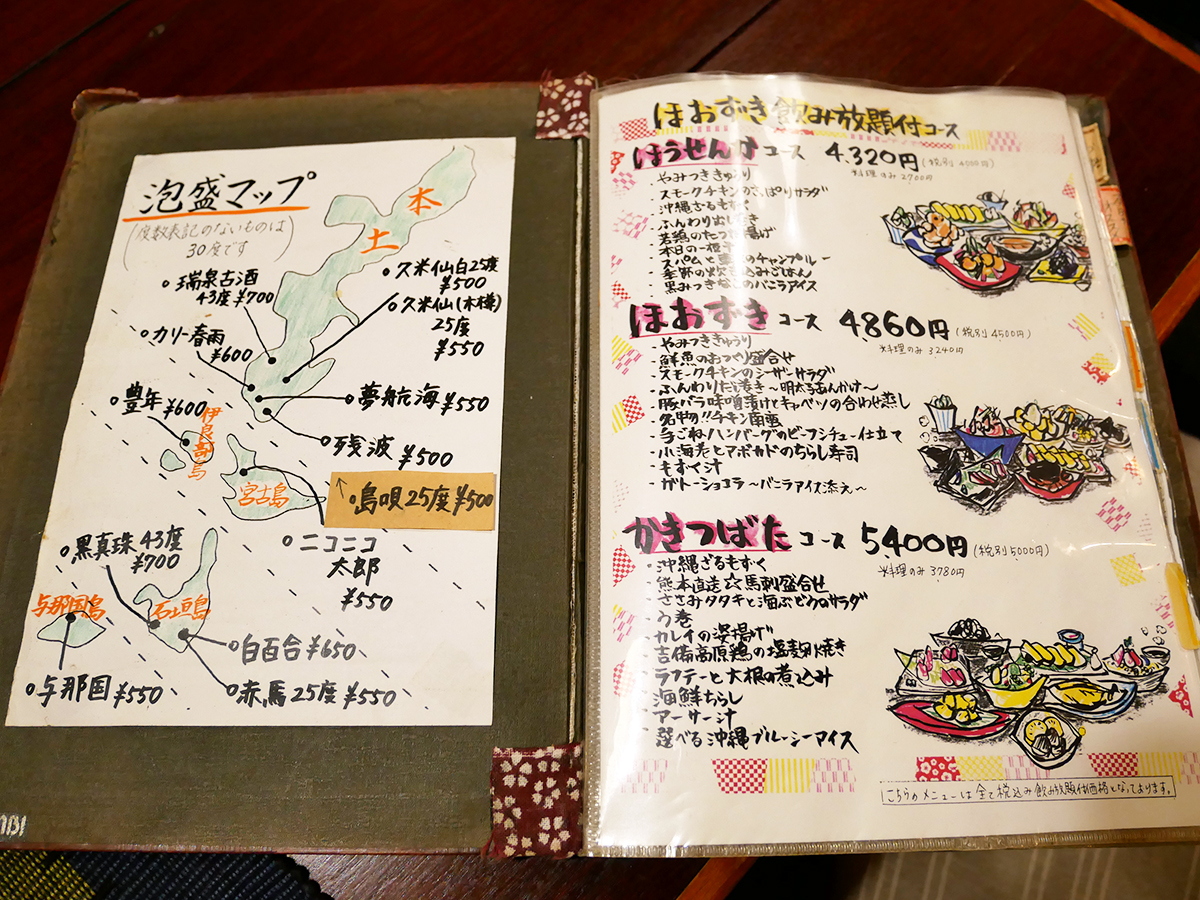 泡盛マップ
(度数表記のないものは
30度です)
本
土
瑞泉古酒
43度¥700
久米仙白25度
¥500
久米仙(木樽)
25度
¥550
カリー春雨
¥600
夢航海¥550
豊年¥600
伊良部島
残波 ¥500
宮古島
↑島唄25度¥500
黒真珠43度
¥700
ニコニコ
太郎
¥550
与那国島
石垣島
白百合¥650
与那国¥550
赤馬25度¥550
ほおずき飲み放題付コース
ほうせんかコース 4,320円(税別4000円)
料理のみ2700円
・やみつききゅうり
・スモークチキンのさっぱりサラダ
・沖縄ざるもずく
・ふんわり出し巻き
・若鶏のたつた揚げ
・本日の一椀
・スパムと のチャンプルー
・季節の炊き込みごはん
・黒みつきなこのバニラアイス
ほおずきコース 4860円(税別4500円)
料理のみ3240円
・やみつききゅうり
・鮮魚のおつくり盛合せ
・スモークチキンのシーザーサラダ
・ふんわりだし巻き〜明太子あんかけ〜
・豚バラ味噌漬けとキャベツの合わせ蒸し
・名物!!チキン南蛮
・手ごねハンバーグのビーフシチュー仕立て
・小海老とアボカドのちらし寿司
・もずく汁
・ガトーショコラ〜バニラアイス添え〜
かきつばたコース 5400円(税別5000円)
料理のみ3780円
・沖縄ざるもずく
・熊本直送☆馬刺盛合せ
・ささみタタキと海ぶどうのサラダ
・う巻
・カレイの姿揚げ
・吉備高原鶏の塩麹焼き
・ラフテーと大根の煮込み
・海鮮ちらし
・アーサー汁
・選べる沖縄ブルーシーアイス
こちらのメニューは全て税込み飲み放題付価格となっております。